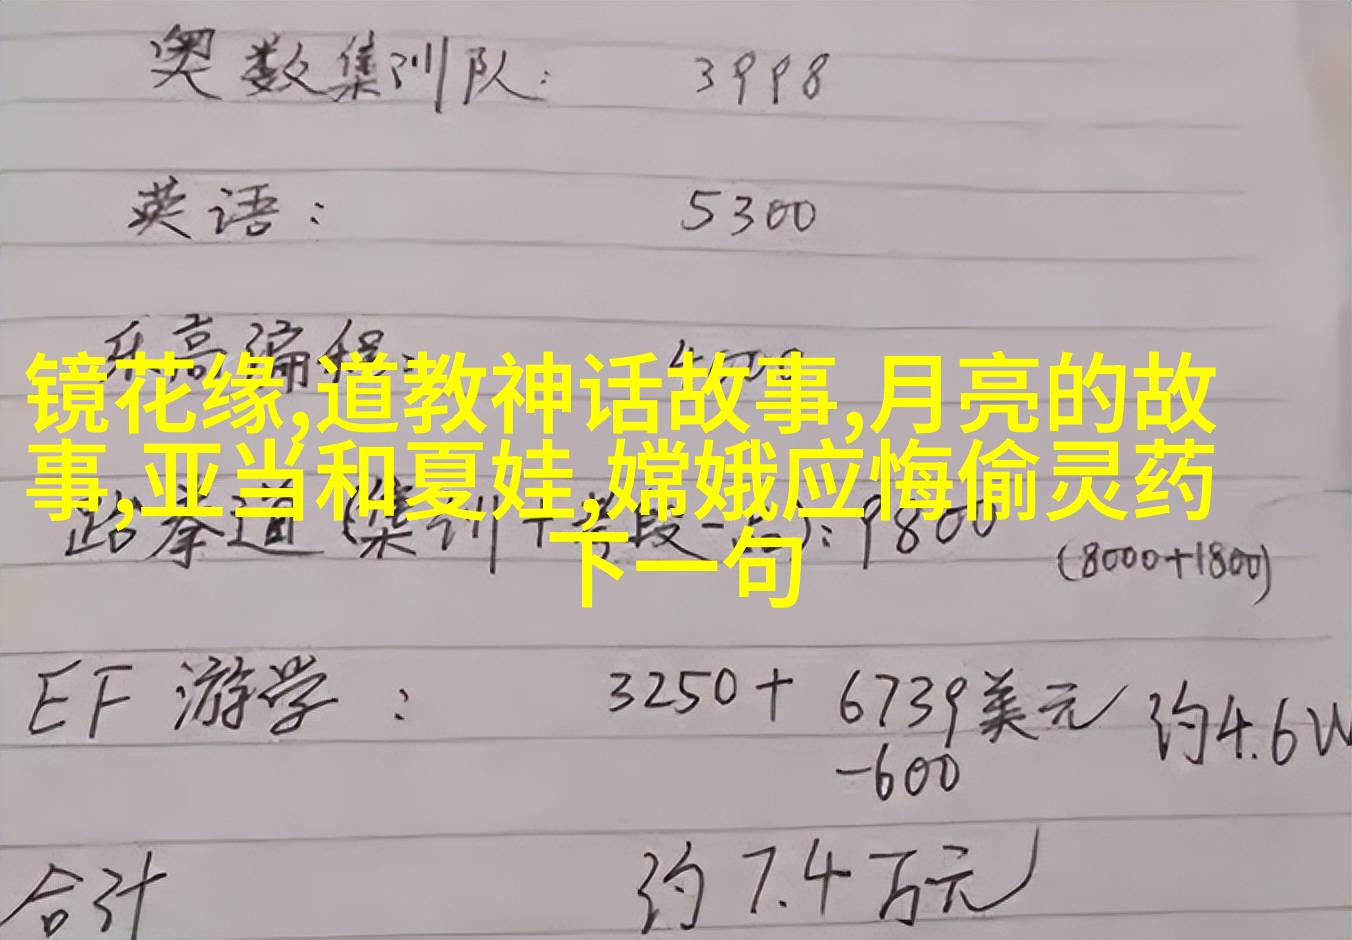 奥数集训队: 3998
英语: 5300
乐高编程:
镜花缘,道教神话故事,月亮的故
事,亚当和夏娃,嫦娥应悔偷灵药
下一句
跆拳道(集训+考段一点): 9800
(8000+1800)
EF 游学: 3250+ 6739美元 约4.6W
-600
合计 约7.4万元